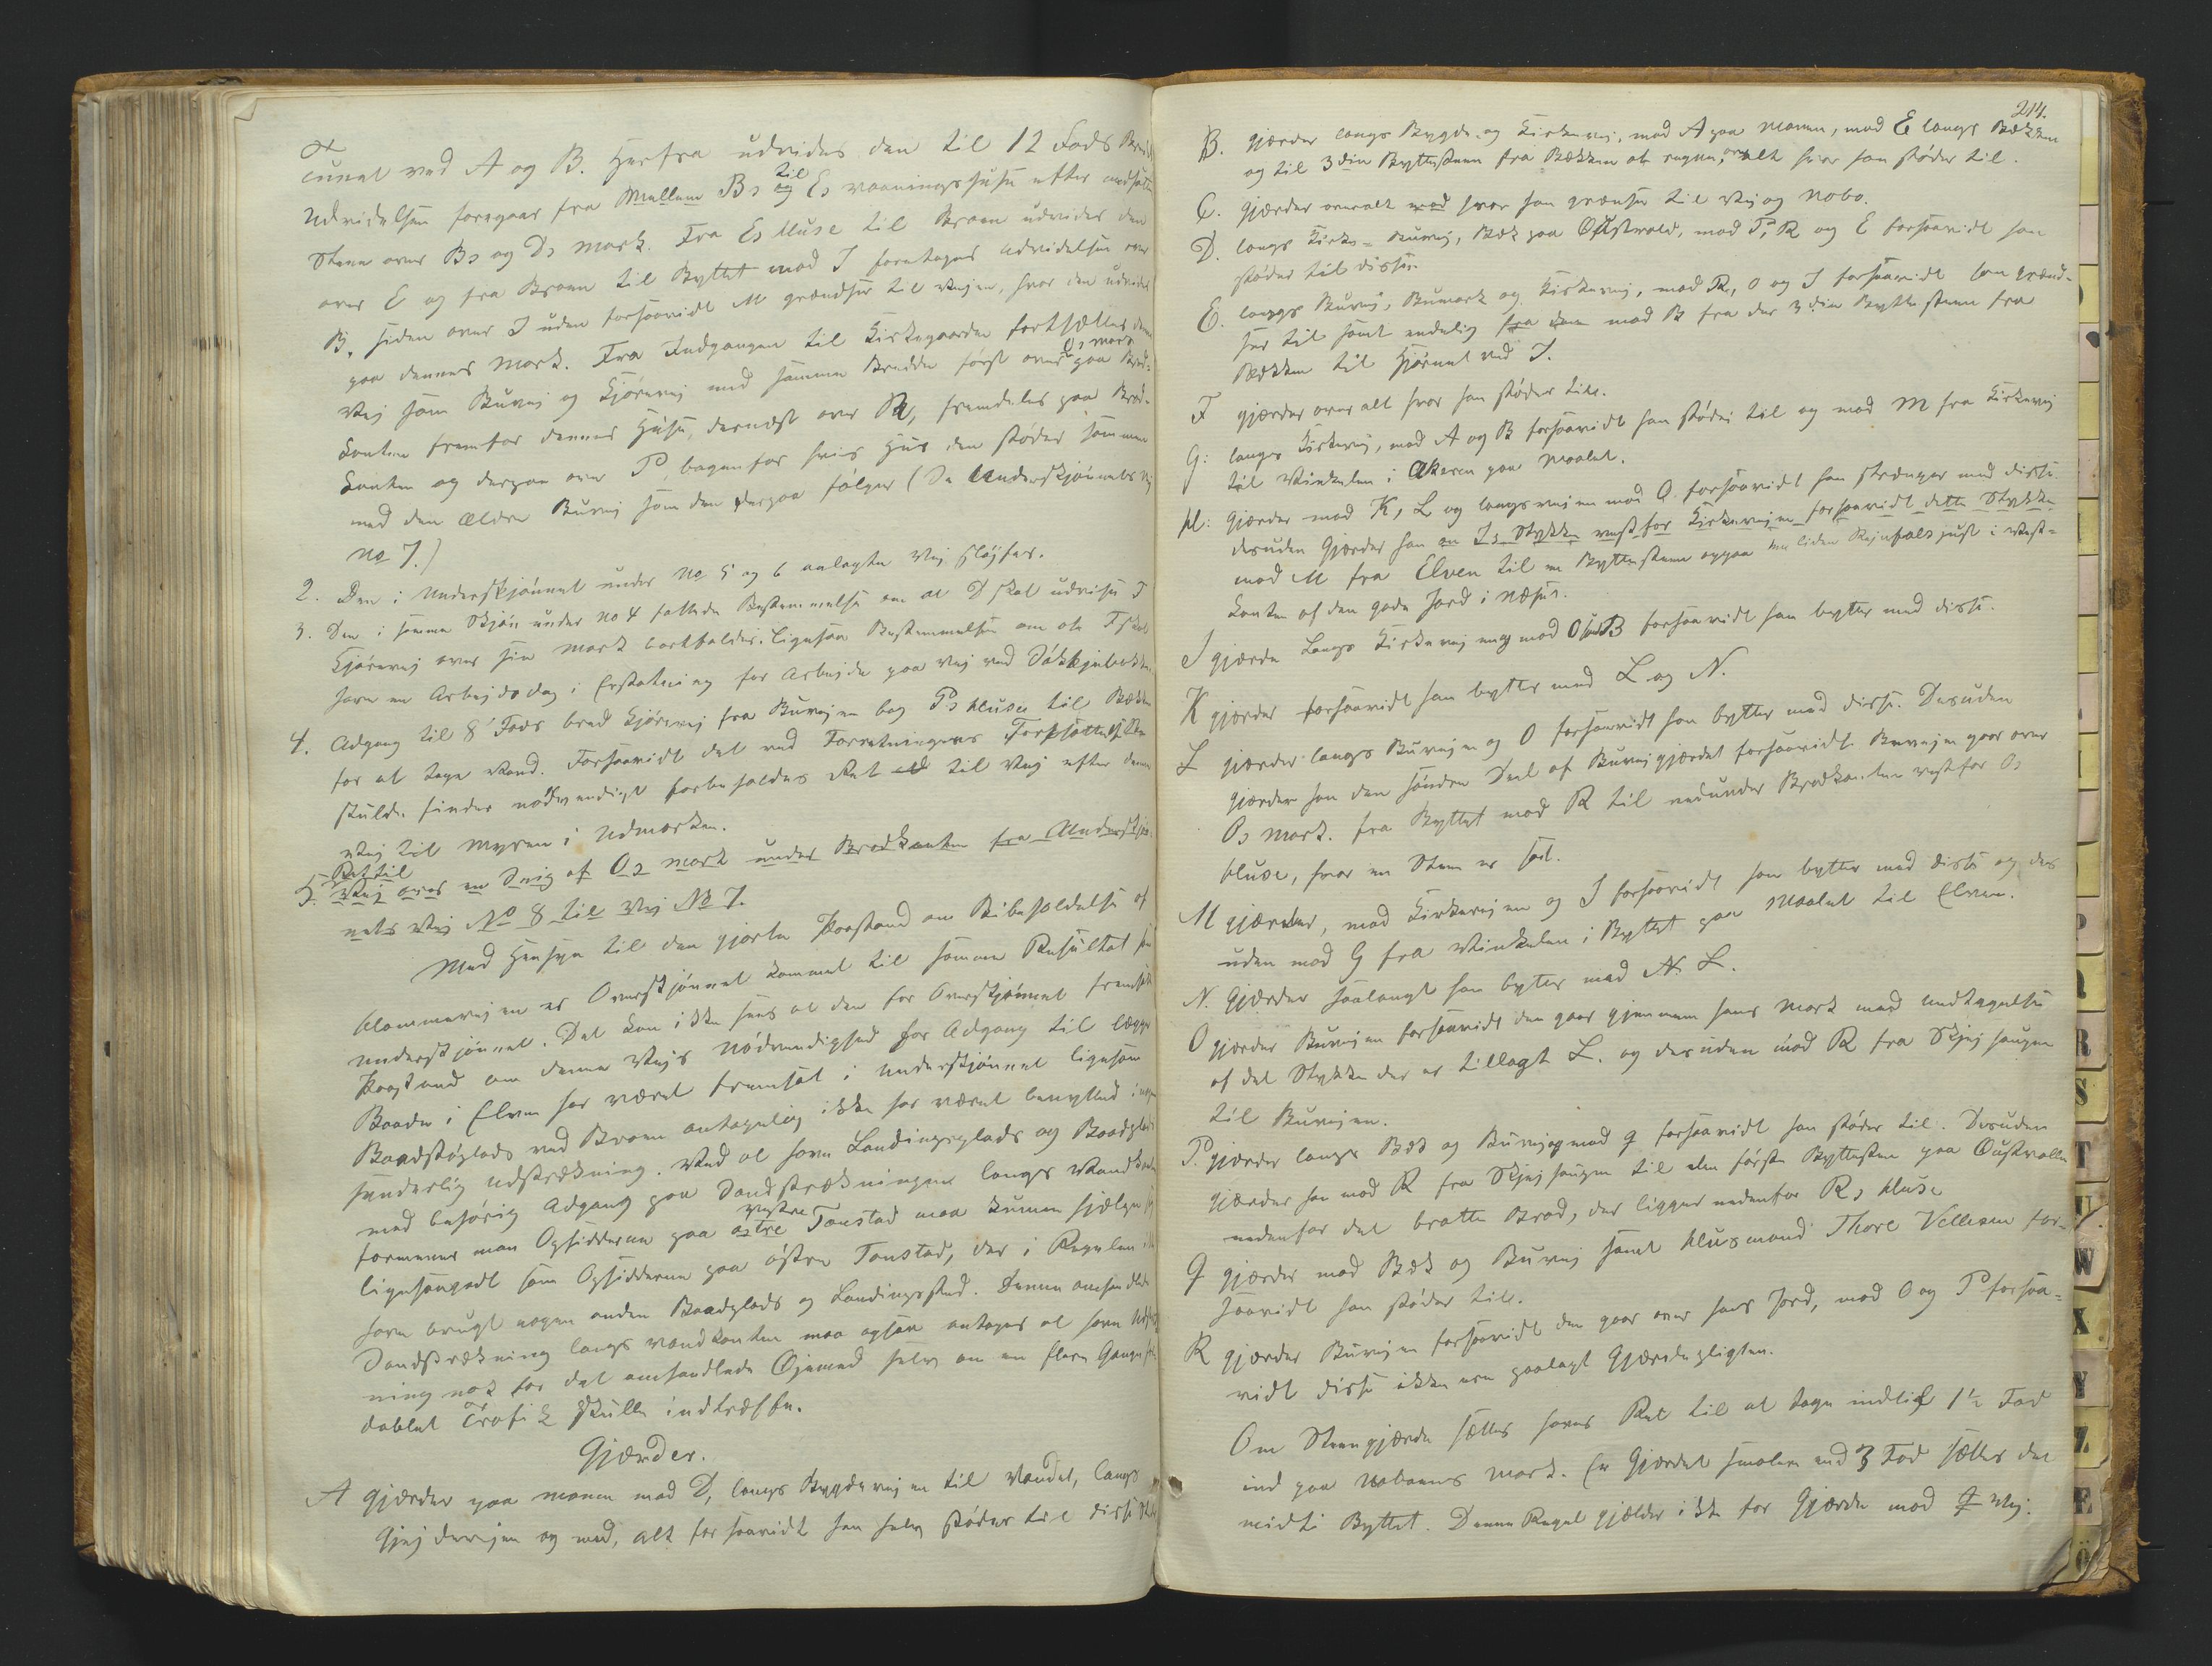 cunet ved A og B. Herfra udvides den til 12 Fods Bredde
Udvidelsen foregaar fra Mellem Bs til Es vaaningshuse efter nedsatte
Stene over Bs og Ds Mark. Fra Es Huse til Broen udvides den
over E og fra Broen til Byttet mod I foretages udvidelsen over
B, siden over I uden forsaavidt M grændser til Vejen, hvor den udvides
paa dennes Mark. Fra Indgangen til Kirkegaarden fortsættes denne
Os mark
Vej som Buvej og Kjørevej med samme Bredde først over paa Bred-
Kanten fremfor dennes Huse, dernæst over R, fremdeles paa Bred-
Kanten og derpaa over P, bagenfor hvis Hus den støder sammen
med den ældre Buvej som den derpaa følger (Se Underskjønnets Vej
No 7.)
2. Den i Underskjønnet under No 5 og 6 anlagte Vej sløjfes.
3. Den i samme Skjøn under No 4 fattede Bestemmelse om at D skal udvise I
Kjørevej over sin Mark bortfalder. Ligesaa Bestemmelsen om at F skal
have en Arbejdsdag i Erstatning for Arbejde paa Vej ved
4. Adgang til 8 Fods bred Kjørevej fra Buvejen bag Ps Huse til Bækken
for at tage Vand. Forsaavidt det ved Forretningens Fortsættelse
skulde findes nødvendigt forbeholdes Ret til Vej efter denne
Vej til Myren i Udmarken.
Ret til
5. Vej over en Snip af Os mark under Bredkanten fra Underskjøn-
nets Vej No 8 til Vej No 7.
Med Hensyn til den gjorte Paastand om Bibeholdelse af
Hammervejen er Overskjønnet kommet til samme Resultat som
Underskjønnet. Det kan ikke sees at den for Overskjønnet fremsatte
Paastand om denne Vejs Nødvendighed for Adgang til
Baade i Elven har været fremsat i Underskjønnet ligesom
Baadstøplads ved Broen antagelig ikke har været benyttet i nogen
synderlig Udstrækning. Ved at have Landingsplads og Baadplads
med behørig Adgang paa Sandstrækningen langs Vandkanten
vestre
formener man Opsidderne paa østre Tonstad maa kunne hjælpe sig
ligesaagodt som Opsidderne paa østre Tonstad, der i Regelen ikke
have brugt nogen anden Baadplads og Landingssted. Denne omhandlede
Sandstrækning langs Vandkanten maa ogsaa antages at have
ning nok for det omhandlede Øjemed selv om en flere Gange
doblet Trafik skulle indtræffe.
Gjærder.
A gjærder paa Moen mod D, langs Bygdevejen til Vandet, langs
Gjejdevejen og mod, alt forsaavidt han selv støder til disse
214.
B. gjærder langs Bygde og Kirkevej, mod A paa Moen, mod E langs Bækken
og til 3die Byttesteen fra Bækken at regne, overalt hvor han støder til.
C. gjærder overalt mod hvor han grændser til Vej og Nabo.
D. langs Kirke- Buvej, Bæk paa Østvold, mod P, R og E forsaavidt han
støder til disse.
E. langs Buvej, Bumark og Kirkevej, mod R, O og I forsaavidt han grænd-
ser til samt endelig fra den mod B fra den 3die Byttesteen fra
Bækken til Hjørnet ved I.
F gjærder over alt hvor han støder til.
G: langs Kirkevej, mod A og B forsaavidt han støder til og mod M fra Kirkevej
til Vinkelen i Akeren paa Maalet.
H: Gjærder mod K, L og langs vejen mod Q forsaavidt han strænger med disse.
desuden Gjærder han en Is Stykke vest for Kirkevejen forsaavidt dette Stykke
mod M fra Elven til en Byttesteen oppaa en liden just i Vest-
Kanten af den gode Jord i Neset.
I gjærde Langs Kirkevejen og mod O og B forsaavidt han bytter med disse.
K gjærder forsaavidt han bytter med L og N.
L gjærder langs Buvejen og O forsaavidt han bytter med disse. Desuden
gjærder han den søndre Deel af Buvejgjærdet forsaavidt Buvejen gaar over
Os Mark. fra Byttet mod R til nedunder Bredkanten vest for Os
Huse, hvor en Steen er sat.
M gjærder, mod Kirkevejen og I forsaavidt han bytter med disse og des
uden mod G fra Vinkelen i Byttet paa Maalet til Elven.
N. Gjærder saalangt han bytter med N. L.
O gjærder Buvejen forsaavidt den gaar gjennem hans Mark med undtagelse
af det Stykke der er tillagt L. og desuden mod R fra Skjejhaugen
til Buvejen.
P. gjærder langs Bæk og Buvej og mod Q forsaavidt han støder til. Desuden
gjærder han mod R fra Skjejhaugen til den første Byttesteen paa Oustvolle
nedenfor det bratte Brod, der ligger nedenfor Rs Huse
Q gjærder mod Bæk og Buvej samt Husmand Thore Vellesen for-
saavidt han støder til.
R gjærder Buvejen forsaavidt den gaar over hans Jord, mod O og P forsaa-
vidt disse ikke ere paalagt Gjærdepligten.
Om Steengjærde sættes haves Ret til at tage indtil 1½ Fod
ind paa Naboens Mark. Er Gjærdet smalere end 3 Fod sættes det
midt i Byttet. Denne Regel gjælder ikke for Gjærde mod Vej.
P
Q
R
S
T
U
W
X
Y
Z
Æ
Ö